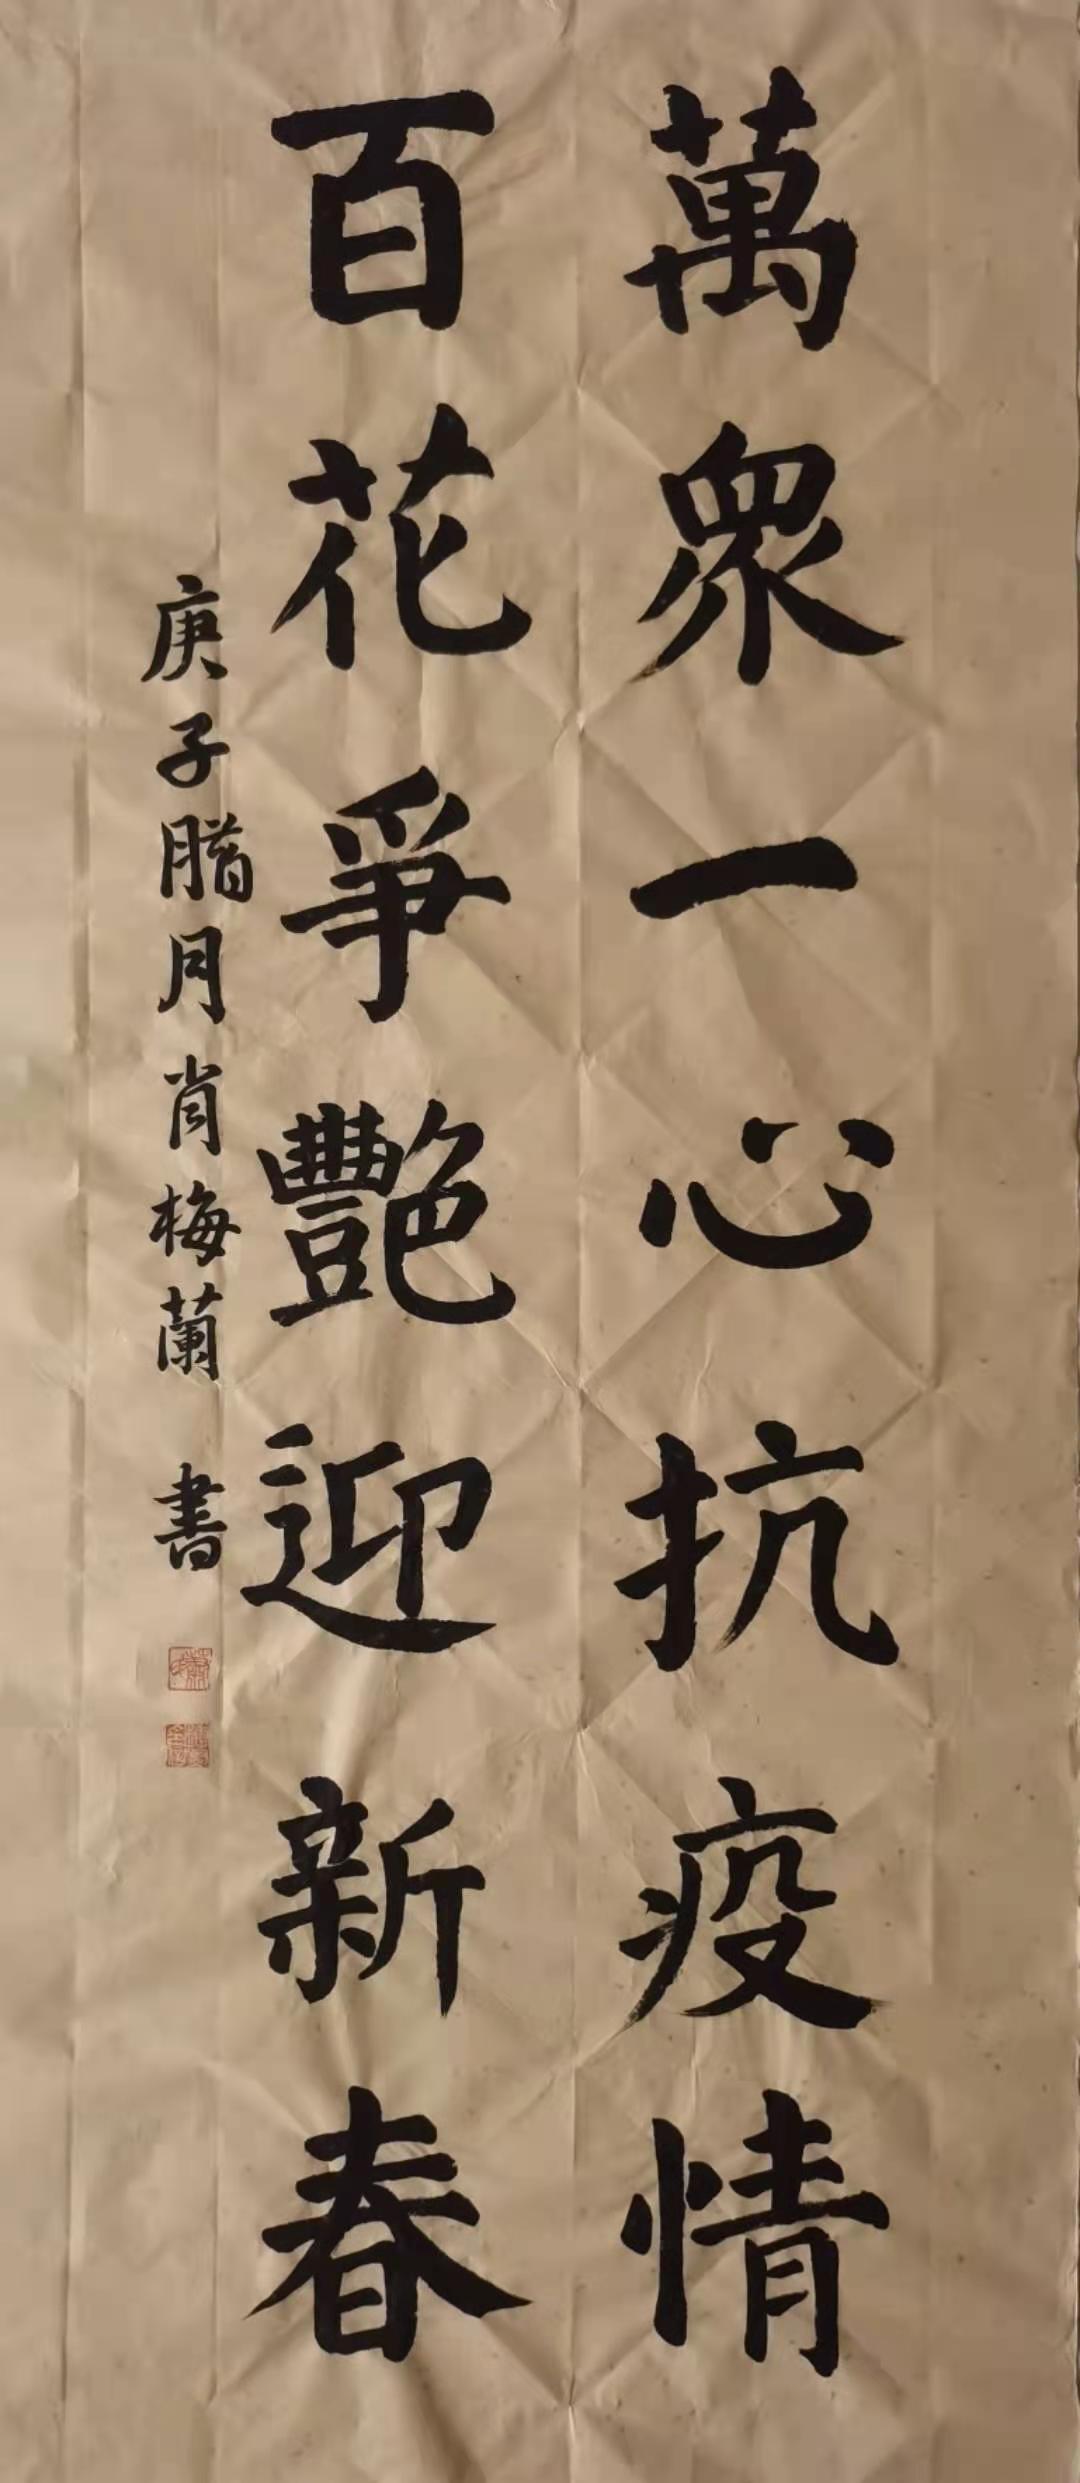 萬衆一心抗疫情
百花爭艷迎新春
庚子腊月肖梅蘭書